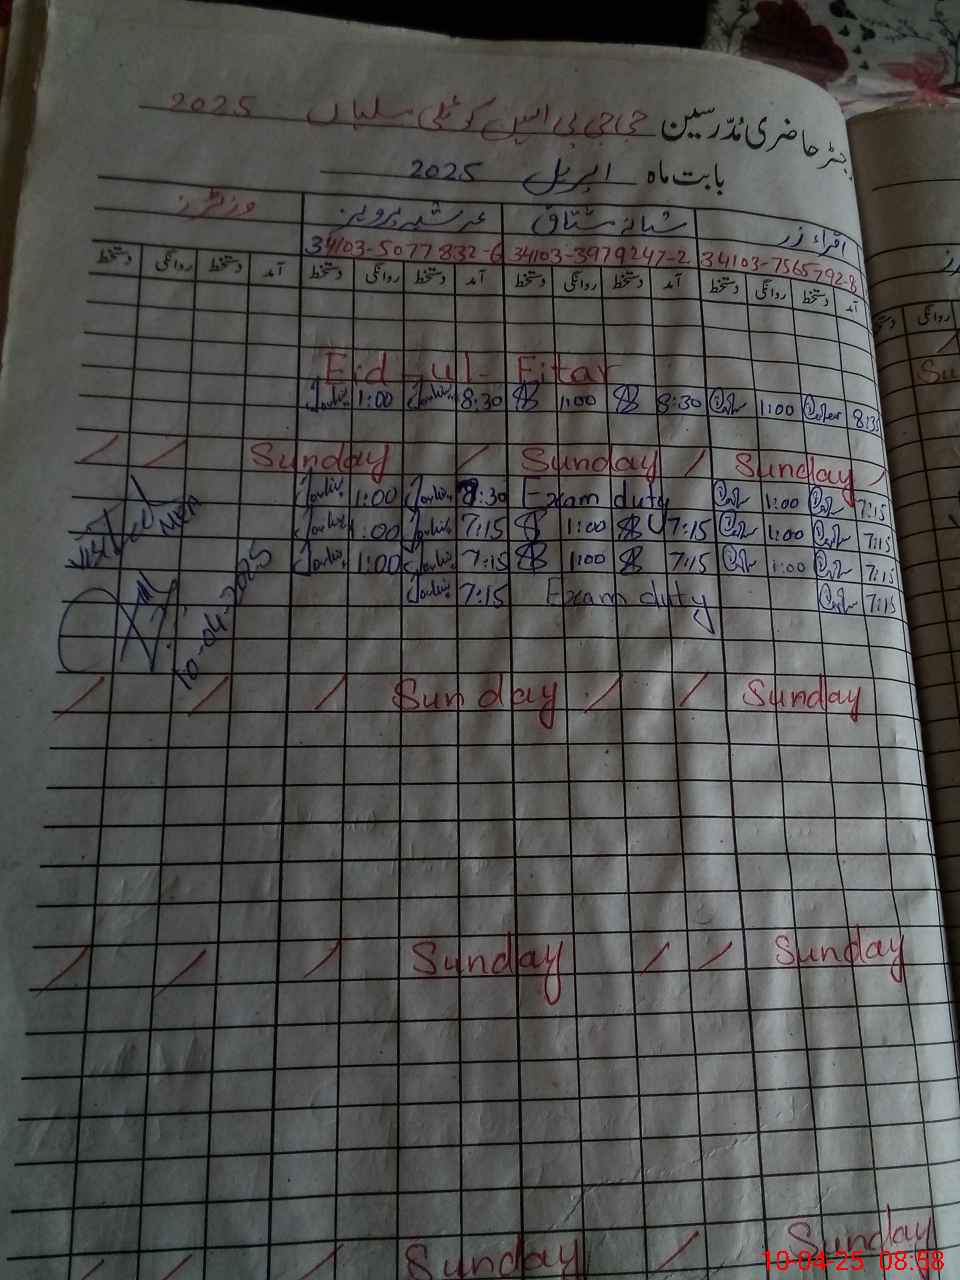 رجسٹر حاضری مدرسین جی جی پی ایس کوٹلی سلیاں 2025
بابت ماہ اپریل 2025
اقراء زر شبانہ مشتاق عرشیہ پرویز وزیٹرز
34103-7565792-8 34103-3979247-2 34103-5077832-6
آمد دستخط روانگی دستخط آمد دستخط روانگی دستخط آمد دستخط روانگی دستخط آمد دستخط روانگی دستخط
Eid-ul-Fitar
1:00 8:30 1:00 8:30 1:00 8:35
Sunday Sunday Sunday
1:00 8:30 Exam duty 1:00 7:15
1:00 7:15 1:00 7:15 1:00 7:15
1:00 7:15 1:00 7:15 1:00 7:15
7:15 Exam duty 7:15
Visited MEA
10-04-2025
Sunday Sunday
Sunday Sunday
Sunday Sunday
روانگی
Su
10-04-25 08:58